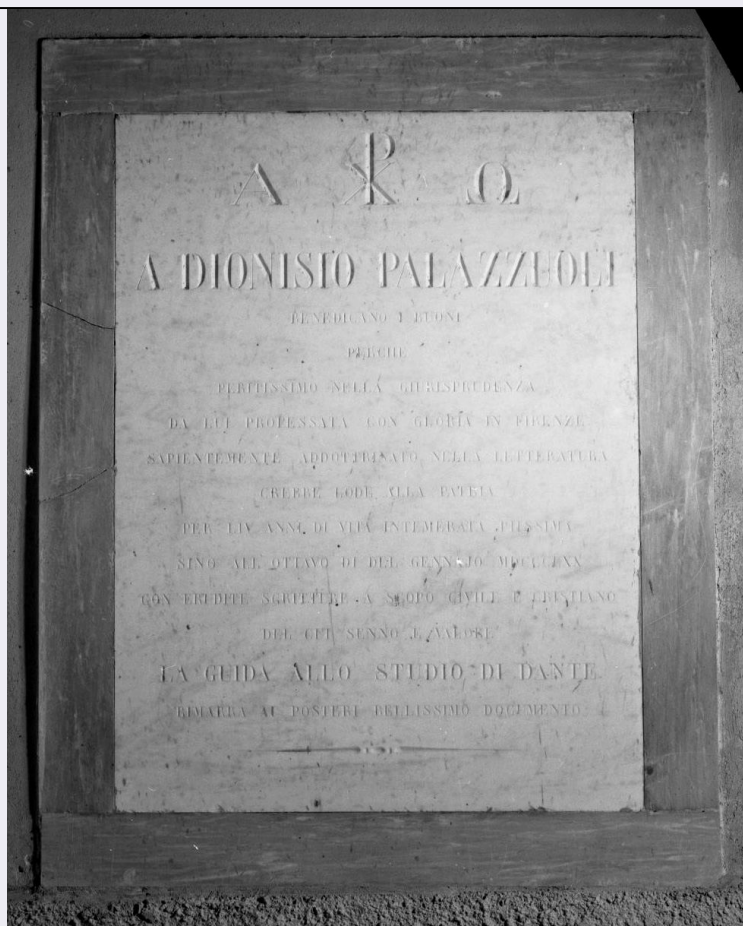 Α ☧ Ω
A DIONISIO PALAZZUOLI
BENEDICANO I BUONI
PERCHE
PERITISSIMO NELLA GIURISPRUDENZA
DA LUI PROFESSATA CON GLORIA IN FIRENZE
SAPIENTEMENTE ADDOTTRINATO NELLA LETTERATURA
CREBBE LODE ALLA PATRIA
PER LIV ANNI DI VITA INTEMERATA PIISSIMA
SINO ALL OTTAVO DI DEL GENNAJO MDCCCLXX
CON ERUDITE SCRITTURE A SCOPO CIVILE E CRISTIANO
DEL CUI SENNO E VALORE
LA GUIDA ALLO STUDIO DI DANTE
RIMARRA AI POSTERI BELLISSIMO DOCUMENTO